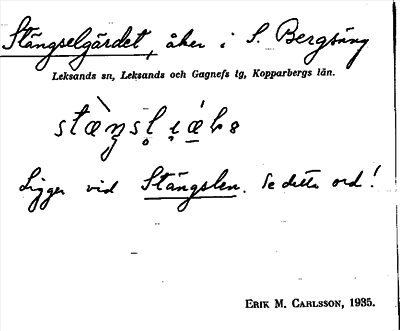 Stängselgärdet, åker i S. Bergsäng
Leksands sn, Leksands och Gagnefs tg, Kopparbergs län.
Ligger vid Stängslen. Se detta ord!
ERIK M. CARLSSON, 1935.